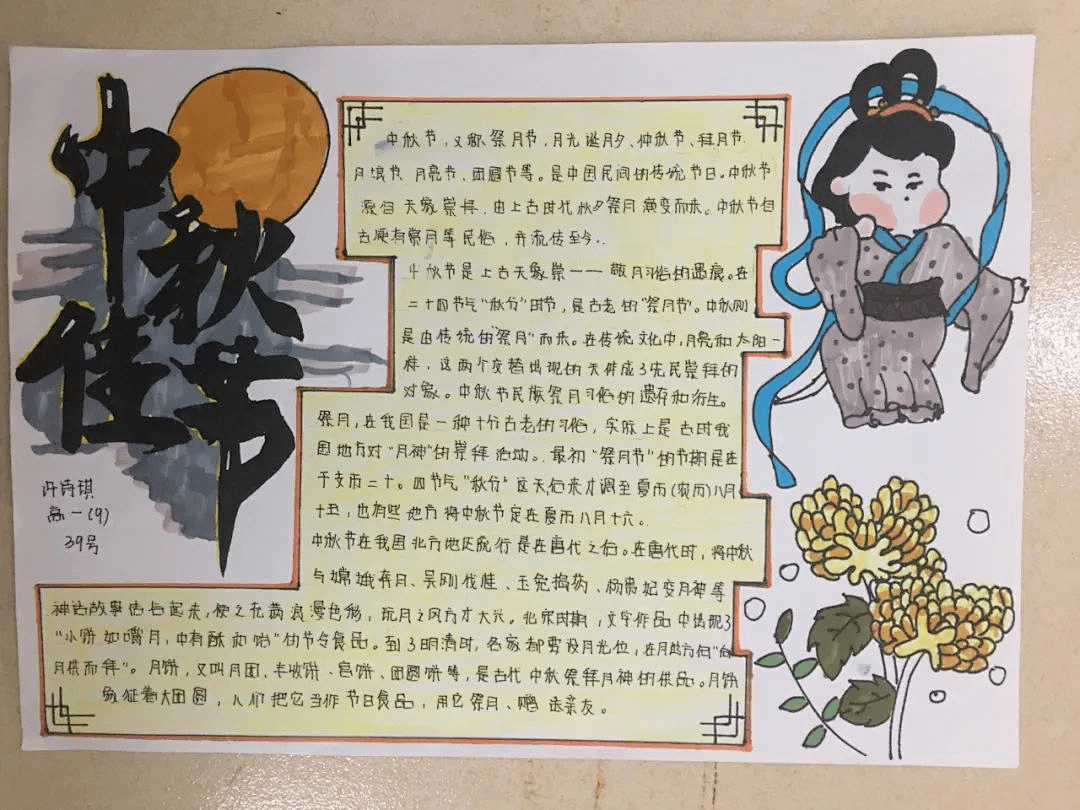 中秋佳节
许诗琪
高一(9)
39号
中秋节，又称祭月节，月光诞月夕、仲秋节、拜月节
月娘节、月亮节、团圆节等。是中国民间的传统节日。中秋节
源自天象崇拜，由上古时代秋夕祭月演变而来。中秋节自
古便有祭月等民俗，并流传至今。
中秋节是上古天象崇一一敬月习俗的遗痕。在
二十四节气"秋分"时节，是古老的"祭月节"。中秋则
是由传统的"祭月"而来。在传统文化中，月亮和太阳一
样，这两个交替出现的天体成了先民崇拜的
对象。中秋节民族祭月习俗的遗存和衍生。
祭月，在我国是一种十分古老的习俗，实际上是古时我
国地方对"月神"的崇拜活动。最初"祭月节"的节期是在
干支历二十。四节气"秋分"这天后来才调至夏历(农历)八月
十五，也有些地方将中秋节定在夏历八月十六。
中秋节在我国北方地区流行是在唐代之后。在唐代时，将中秋
与嫦娥奔月、吴刚伐桂、玉兔捣药、杨贵妃变月神等
神话故事结合起来，使之充满浪漫色彩，玩月之风方才大兴。北宋时期，文学作品中出现了
"小饼如嚼月，中有酥和饴"的节令食品。到了明清时，各家都要设月光位，在月出方向"向
月供而拜"。月饼，又叫月团、丰收饼、宫饼、团圆饼等，是古代中秋祭拜月神的供品。月饼
象征着大团圆，人们把它当作节日食品，用它祭月、赠送亲友。